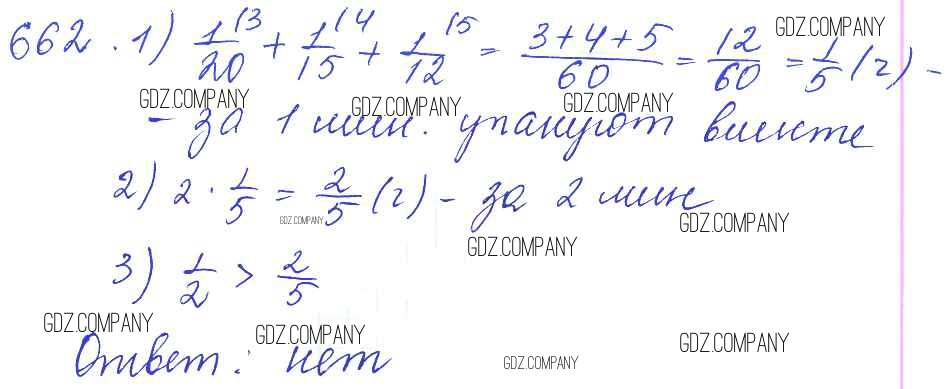 662. 1) 1/20 (3 + 1/15 (4 + 1/12 (5 = 3+4+5/60 = 12/60 = 1/5 (г) -
GDZ.COMPANY
GDZ.COMPANY GDZ.COMPANY GDZ.COMPANY
- за 1 мин. упакуют вместе
2) 2 · 1/5 = 2/5 (г) - за 2 мин
GDZ.COMPANY GDZ.COMPANY
GDZ.COMPANY
3) 1/2 > 2/5
GDZ.COMPANY GDZ.COMPANY GDZ.COMPANY
Ответ: нет
GDZ.COMPANY